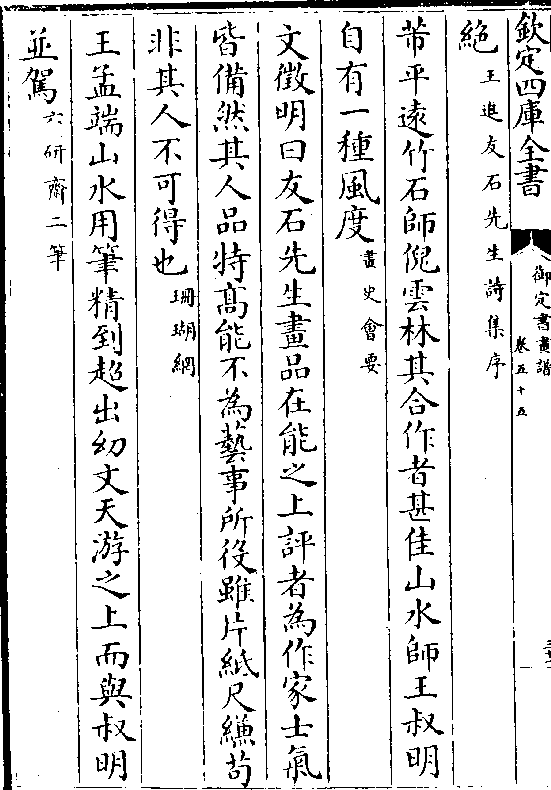 欽定四庫全書
御定書畫譜
卷五十五
絶 王進友石先生詩集序
芾平遠竹石師倪雲林其合作者甚佳山水師王叔明
自有一種風度 畫史會要
文徵明曰友石先生畫品在能之上評者為作家士氣
皆備然其人品特髙能不為藝事所役雖片紙尺縑茍
非其人不可得也 珊瑚網
王孟端山水用筆精到超出幼文天游之上而與叔明
並駕 六研齋二筆